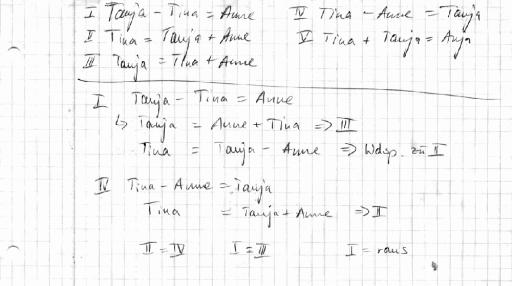 I Tanja - Tina = Anne IV Tina - Anne = Tanja
II Tina = Tanja + Anne V Tina + Tanja = Anja
III Tanja = Tina + Anne
I Tanja - Tina = Anne
↳ Tanja = Anne + Tina => III
Tina = Tanja - Anne => Wdsp. zu II
IV Tina - Anne = Tanja
Tina = Tanja + Anne => II
II = IV I = III I = raus